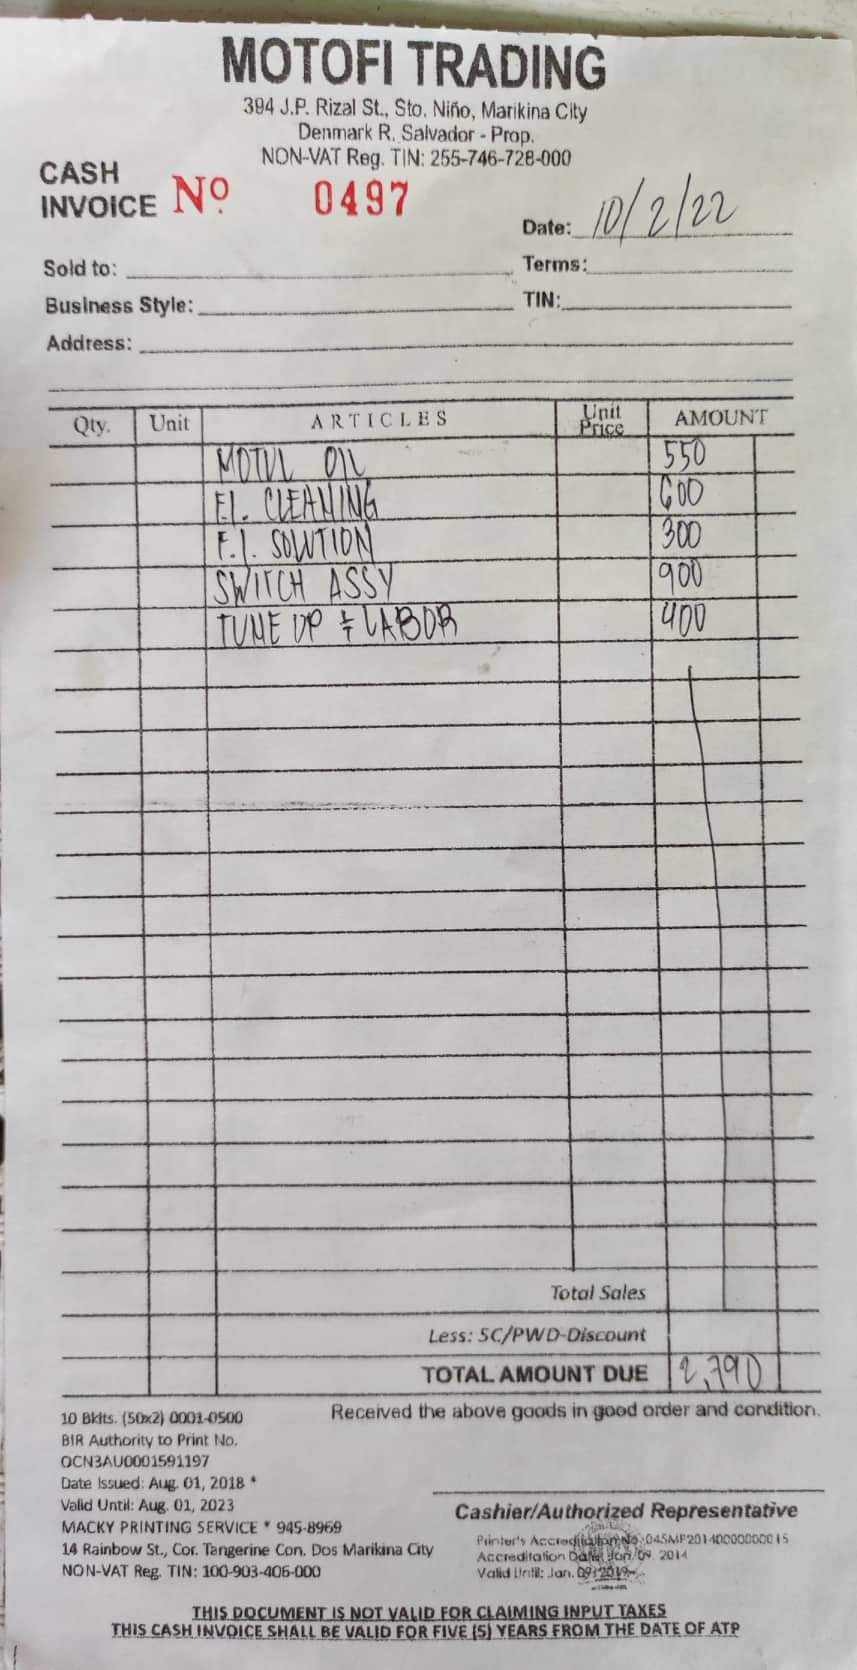 MOTOFI TRADING
394 J.P. Rizal St., Sto. Niño, Marikina City
Denmark R. Salvador - Prop.
NON-VAT Reg. TIN: 255-746-728-000
CASH INVOICE Nº 0497
Date: 10/2/22
Sold to: Terms:
Business Style: TIN:
Address:
Qty. Unit ARTICLES Unit Price AMOUNT
MOTUL OIL 550
F.I. CLEANING 600
F.I. SOLUTION 300
SWITCH ASSY 900
TUNE UP & LABOR 400
Total Sales
Less: SC/PWD-Discount
TOTAL AMOUNT DUE 2,790
Received the above goods in good order and condition.
10 Bklts. (50x2) 0001-0500
BIR Authority to Print No.
OCN3AU0001591197
Date Issued: Aug. 01, 2018 *
Valid Until: Aug. 01, 2023
MACKY PRINTING SERVICE * 945-8969
14 Rainbow St., Cor. Tangerine Con. Dos Marikina City
NON-VAT Reg. TIN: 100-903-406-000
Cashier/Authorized Representative
Printer's Accreditation No. 045MP20140000000015
Accreditation Date: Jan. 09, 2014
Valid Until: Jan. 09, 2019
THIS DOCUMENT IS NOT VALID FOR CLAIMING INPUT TAXES
THIS CASH INVOICE SHALL BE VALID FOR FIVE (5) YEARS FROM THE DATE OF ATP